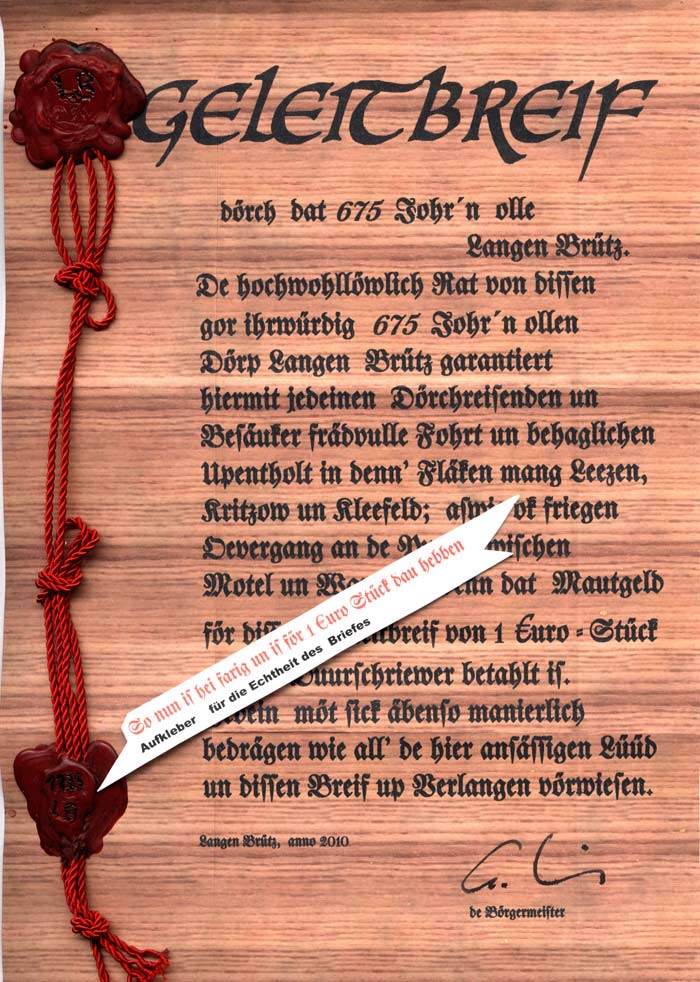 GELEITBREIF
dörch dat 675 Johr´n olle
Langen Brütz.
De hochwohllöwlich Rat von dissen
gor ihrwürdig 675 Johr´n ollen
Dörp Langen Brütz garantiert
hiermit jedeinen Dörchreisenden un
Besäuker frädvulle Fohrt un behaglichen
Upentholt in denn' Fläken mang Leezen,
Kritzow un Kleefeld; ok friegen
Oevergang an de
Motel un dat Mautgeld
för von 1 Euro = Stück
betahlt is.
möt sick äbenso manierlich
bedrägen wie all' de hier ansässigen Lüüd
un dissen Breif up Verlangen vörwiesen.
So nun is hei farig un is för 1 Euro Stück dau hebben
Aufkleber für die Echtheit des Briefes
Langen Brütz, anno 2010
de Börgermeister
LB